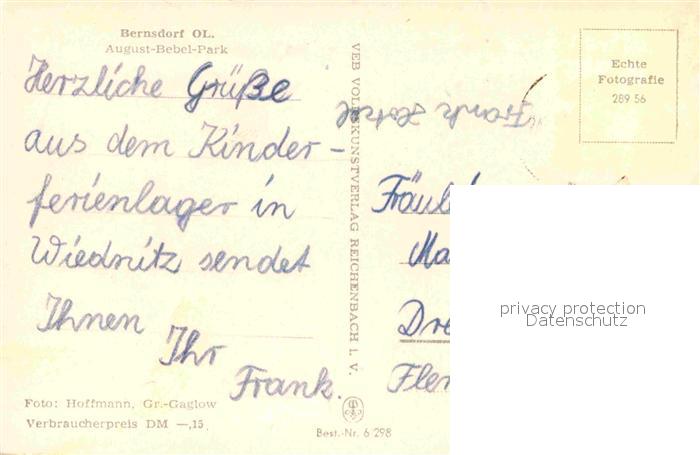 Bernsdorf OL.
August-Bebel-Park
Herzliche Grüße
aus dem Kinder-
ferienlager in
Wiednitz sendet
Ihnen
Ihr
Frank.
Foto: Hoffmann, Gr.-Gaglow
Verbraucherpreis DM —,15
VEB VOLKSKUNSTVERLAG REICHENBACH I. V.
Best.-Nr. 6 298
Echte
Fotografie
289 56
Frank
Fräul
Ma
Dre
Fle
privacy protection
Datenschutz